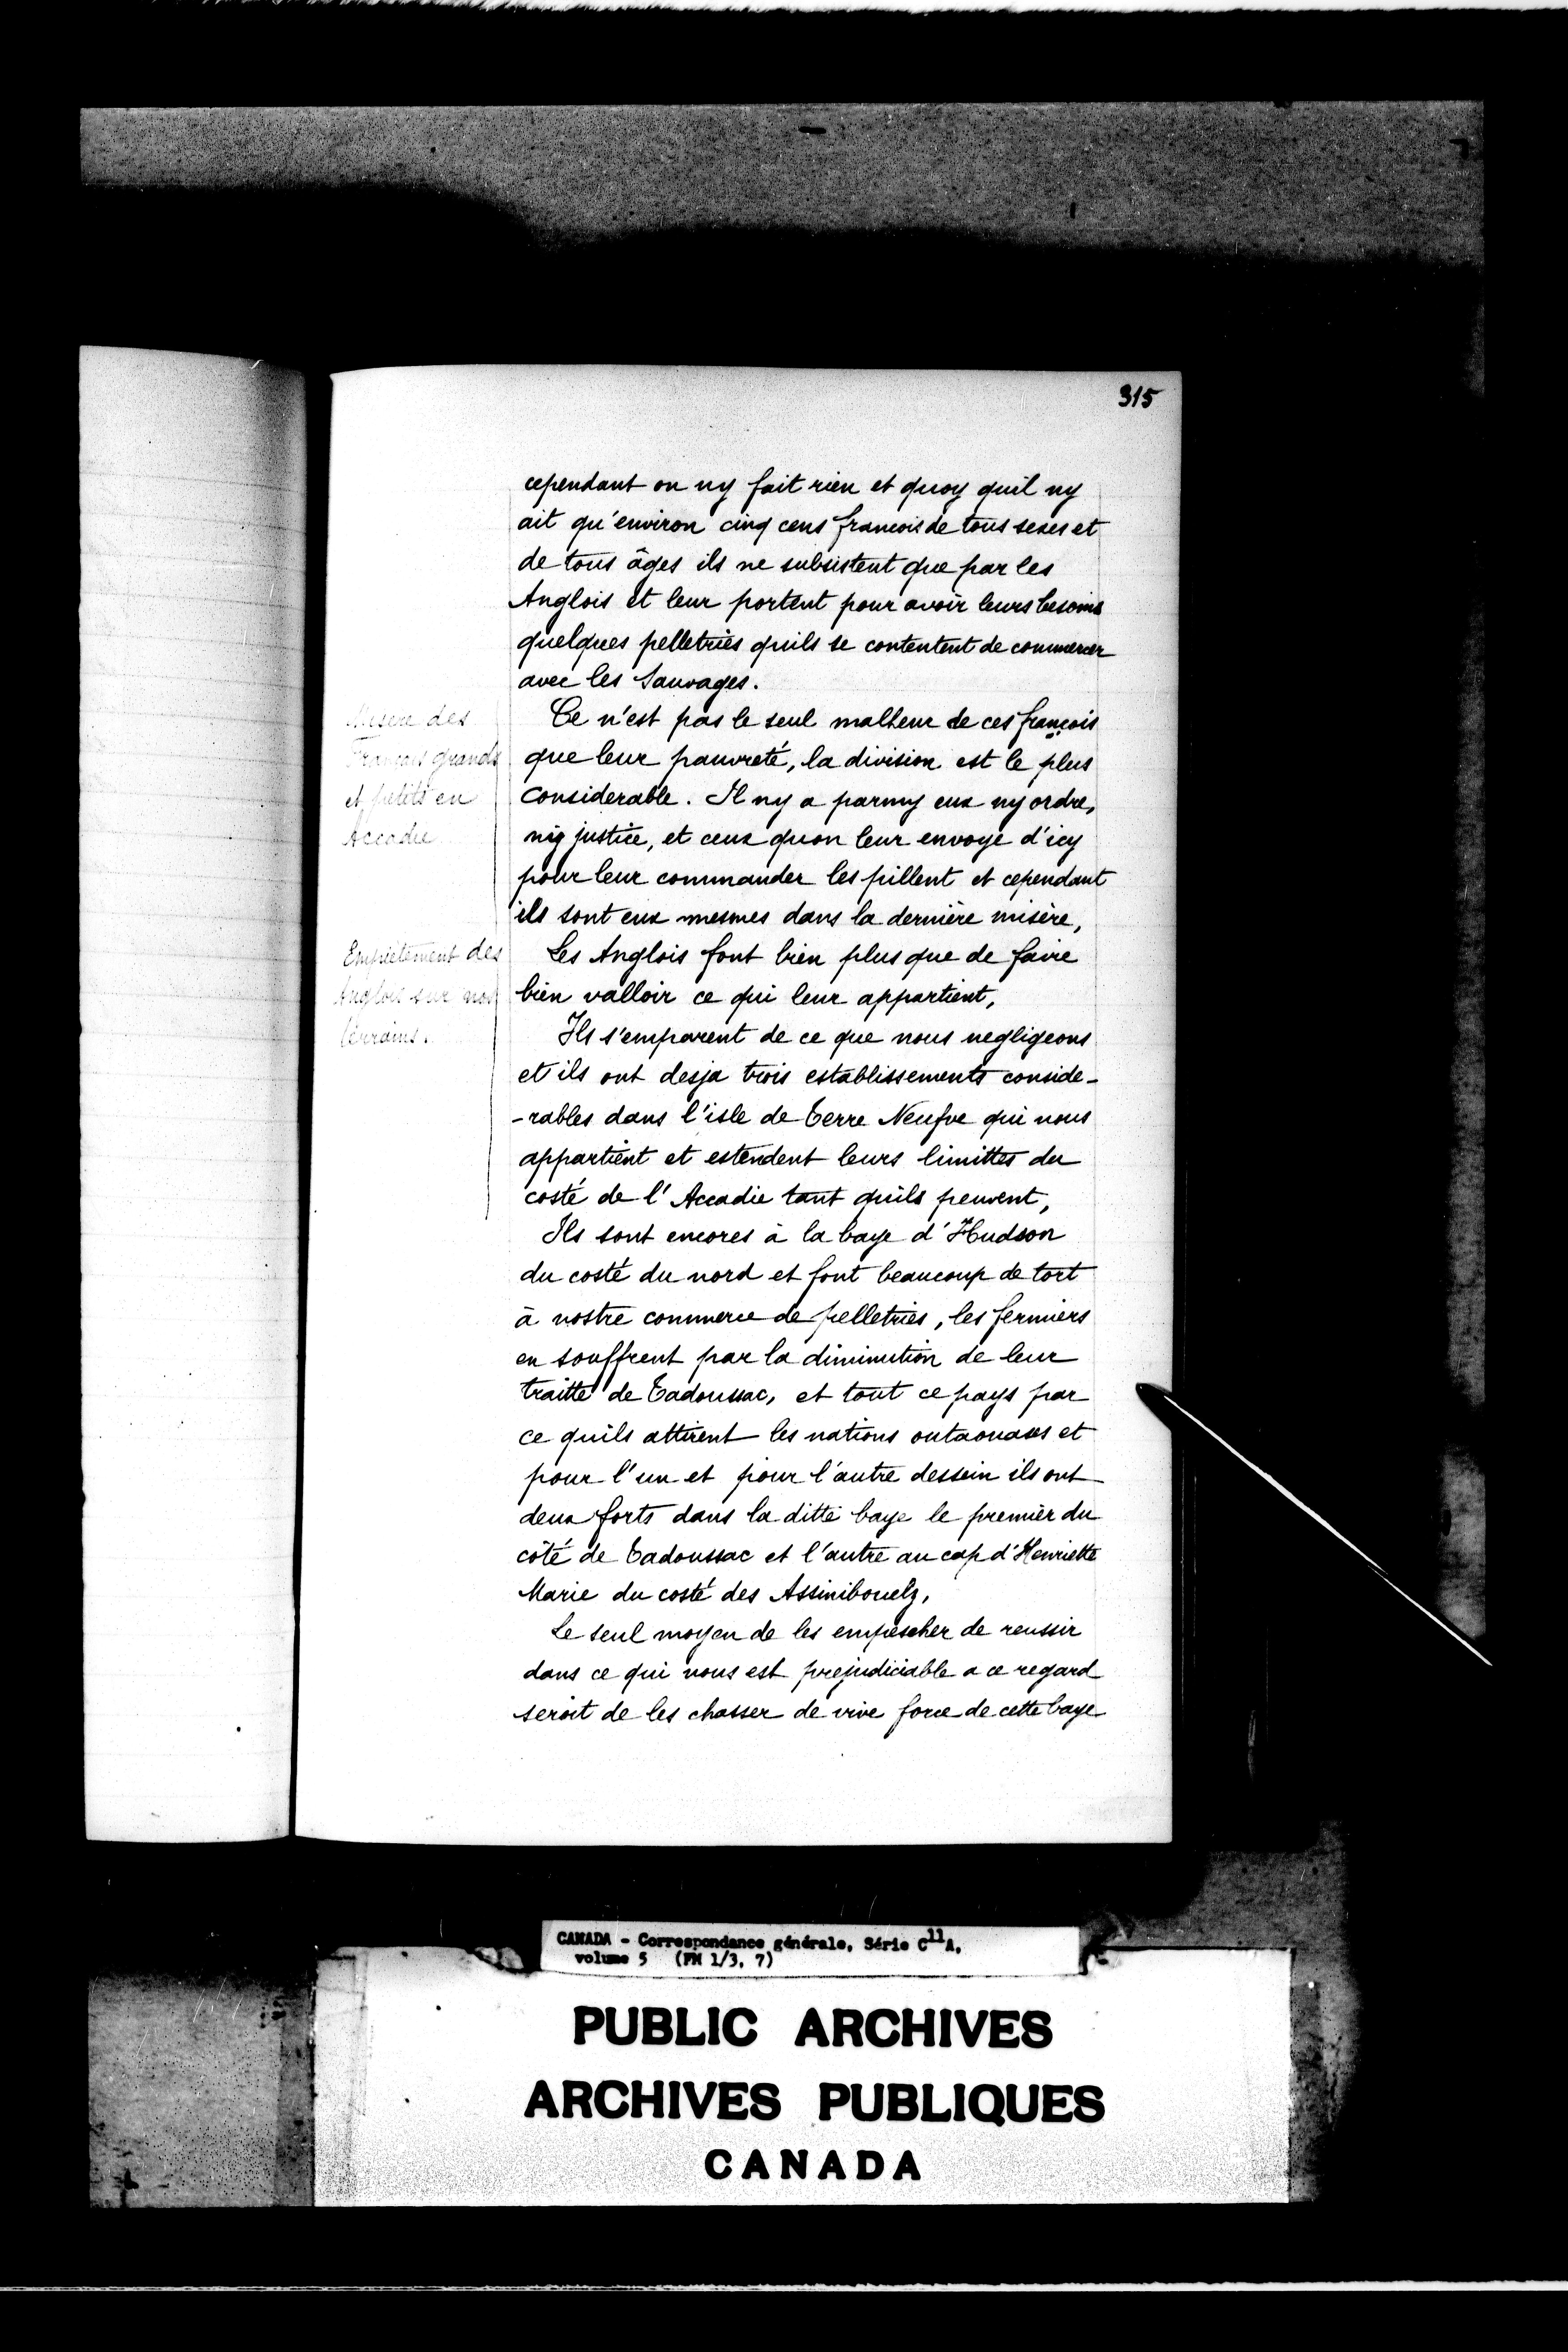 315
cependant on ny fait rien et quoy quil ny
ait qu'environ cinq cens francois de tous sexes et
de tous âges ils ne subsistent que par les
Anglois et leur portent pour avoir leurs besoins
quelques pelletries quils se contentent de commercer
avec les Sauvages.
Misere des
Francois grands
et petits en
Accadie
Ce n'est pas le seul malheur de ces françois
que leur pauvreté, la division est le plus
considerable. Il ny a parmy eux ny ordre,
nig justice, et ceux quon leur envoye d'icy
pour leur commander les pillent et cependant
ils sont eux mesmes dans la dernière misère,
Empietement des
Anglois sur nos
terrains.
Les Anglois font bien plus que de faire
bien valloir ce qui leur appartient,
Ils s'emparent de ce que nous negligeons
et ils ont desja trois establissements conside-
-rables dans l'isle de Terre Neufve qui nous
appartient et estendent leurs limittes du
costé de l'Accadie tant quils peuvent,
Ils sont encores à la baye d'Hudson
du costé du nord et font beaucoup de tort
à nostre commerce de pelletries, les fermiers
en souffrent par la diminution de leur
traitte de Tadoussac, et tout ce pays par
ce quils attirent les nations outaouases et
pour l'un et pour l'autre dessein ils ont
deux forts dans la ditte baye le premier du
côté de Tadoussac et l'autre au cap d'Henriette
Marie du costé des Assinibouelz,
Le seul moyen de les empescher de reussir
dans ce qui nous est prejudiciable a ce regard
seroit de les chasser de vive force de cette baye
CANADA - Correspondance générale, Série C11A,
volume 5 (FM 1/3, 7)
PUBLIC ARCHIVES
ARCHIVES PUBLIQUES
CANADA